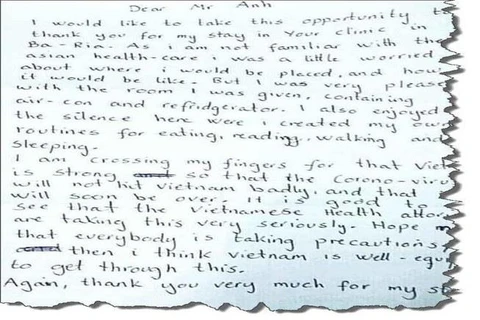 Dear Mr Anh
I would like to take this opportunity
thank you for my stay in Your clinic in
Ba-Ria. As i am not familiar with the
asian health-care i was a little worried
about where i would be placed, and how
it would be like. But I was very please
with the room I was given, containing
air-con and refridgerator. I also enjoyed
the silence here were i created my own
routines for eating, reading, walking and
sleeping.
I am crossing my fingers for that Viet
is strong so that the Corono-viru
will not hit Vietnam badly, and that
will soon be over. It is good to
see that the Vietnamese Health
are taking this very seriously. Hope
that everybody is taking precautions,
then i think vietnam is well-equ
to get through this.
Again, thank you very much for my st